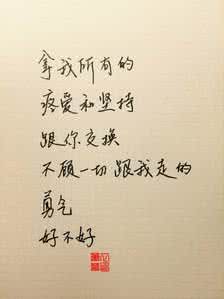 拿我所有的
疼爱和坚持
跟你交换
不顾一切跟我走的
勇气
好不好